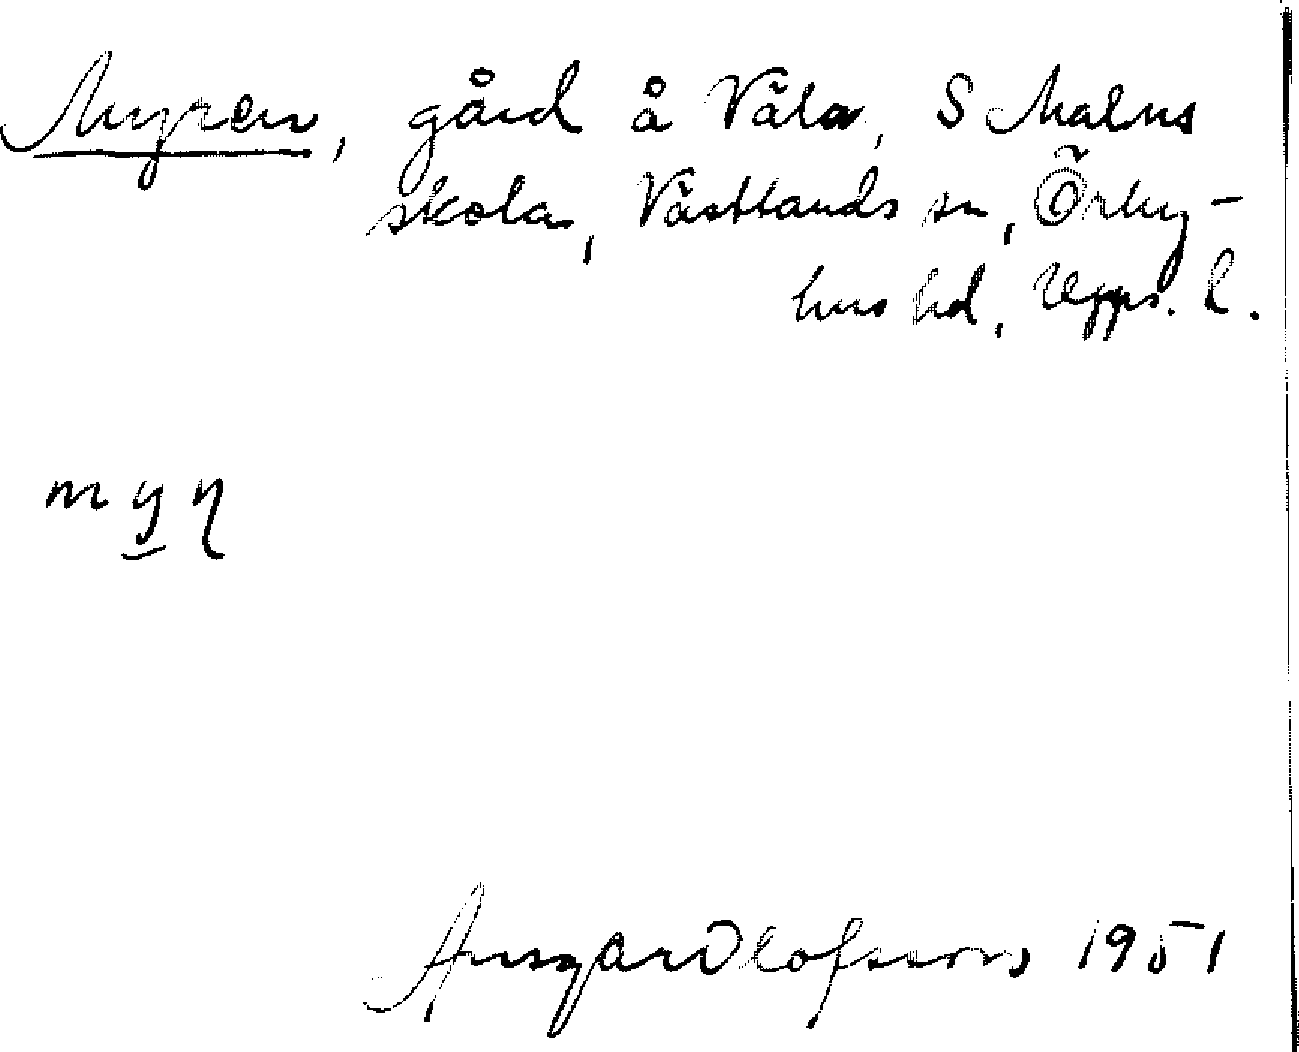 Myren, gård å Väla, S Malms
skola, Västlands sn, Örby-
hus hd, Upps. l.
m y̲ ɳ
Ansgar Olofsson 1951